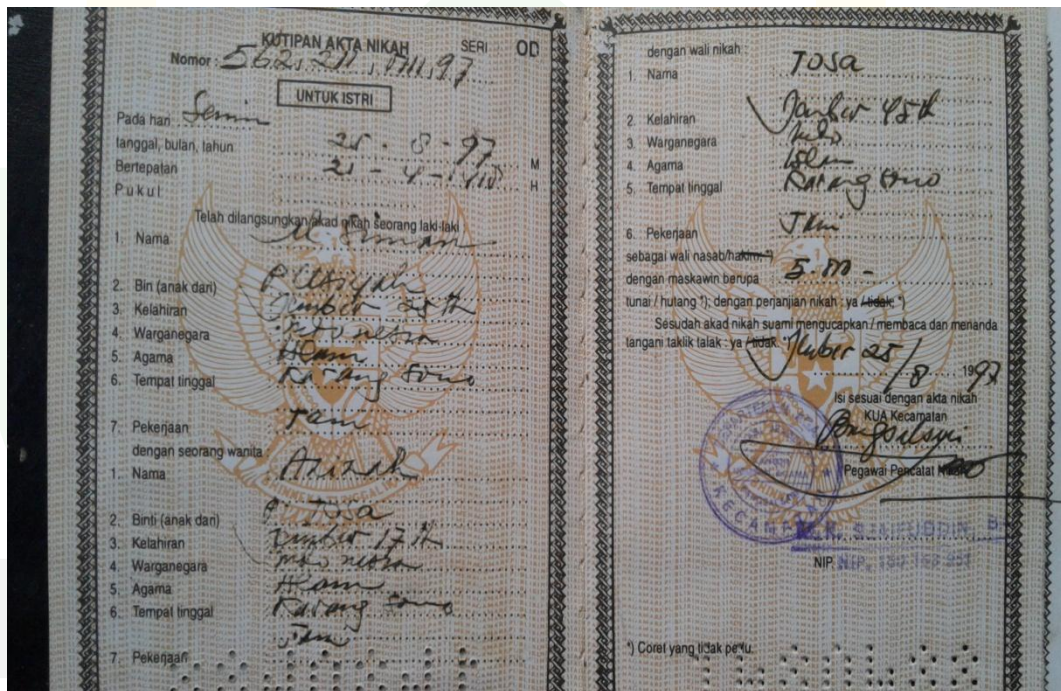 KUTIPAN AKTA NIKAH SERI : OD
Nomor : 562, 211, VIII, 97
UNTUK ISTRI
Pada hari Senin
tanggal, bulan, tahun 25 - 8 - 97 M
Bertepatan 21 - 4 - H
Pukul
Telah dilangsungkan akad nikah seorang laki-laki
1. Nama
2. Bin (anak dari) P
3. Kelahiran Jember 25 th
4. Warganegara Indonesia
5. Agama Islam
6. Tempat tinggal Karang Sono
7. Pekerjaan Tani
dengan seorang wanita :
1. Nama Azizah
2. Binti (anak dari) P Tosa
3. Kelahiran Jember 17 th
4. Warganegara Indonesia
5. Agama Islam
6. Tempat tinggal Karang Sono
Tani
7. Pekerjaan
dengan wali nikah :
1. Nama TOSA
2. Kelahiran Jember 45 th
3. Warganegara Indo
4. Agama Islam
5. Tempat tinggal Karang Sono
6. Pekerjaan Tani
sebagai wali nasab/hakim *)
dengan maskawin berupa
tunai / hutang *); dengan perjanjian nikah : ya / tidak *)
Sesudah akad nikah suami mengucapkan / membaca dan menanda
tangani taklik talak : ya / tidak. Jember 25/8 1997
Isi sesuai dengan akta nikah
KUA Kecamatan
Bangsalsari
Pegawai Pencatat
KECAMATAN
NIP. NIP. 150
*) Coret yang tidak perlu.